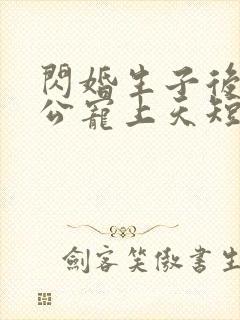 閃婚生子後
公寵上天短
劍客笑傲書生